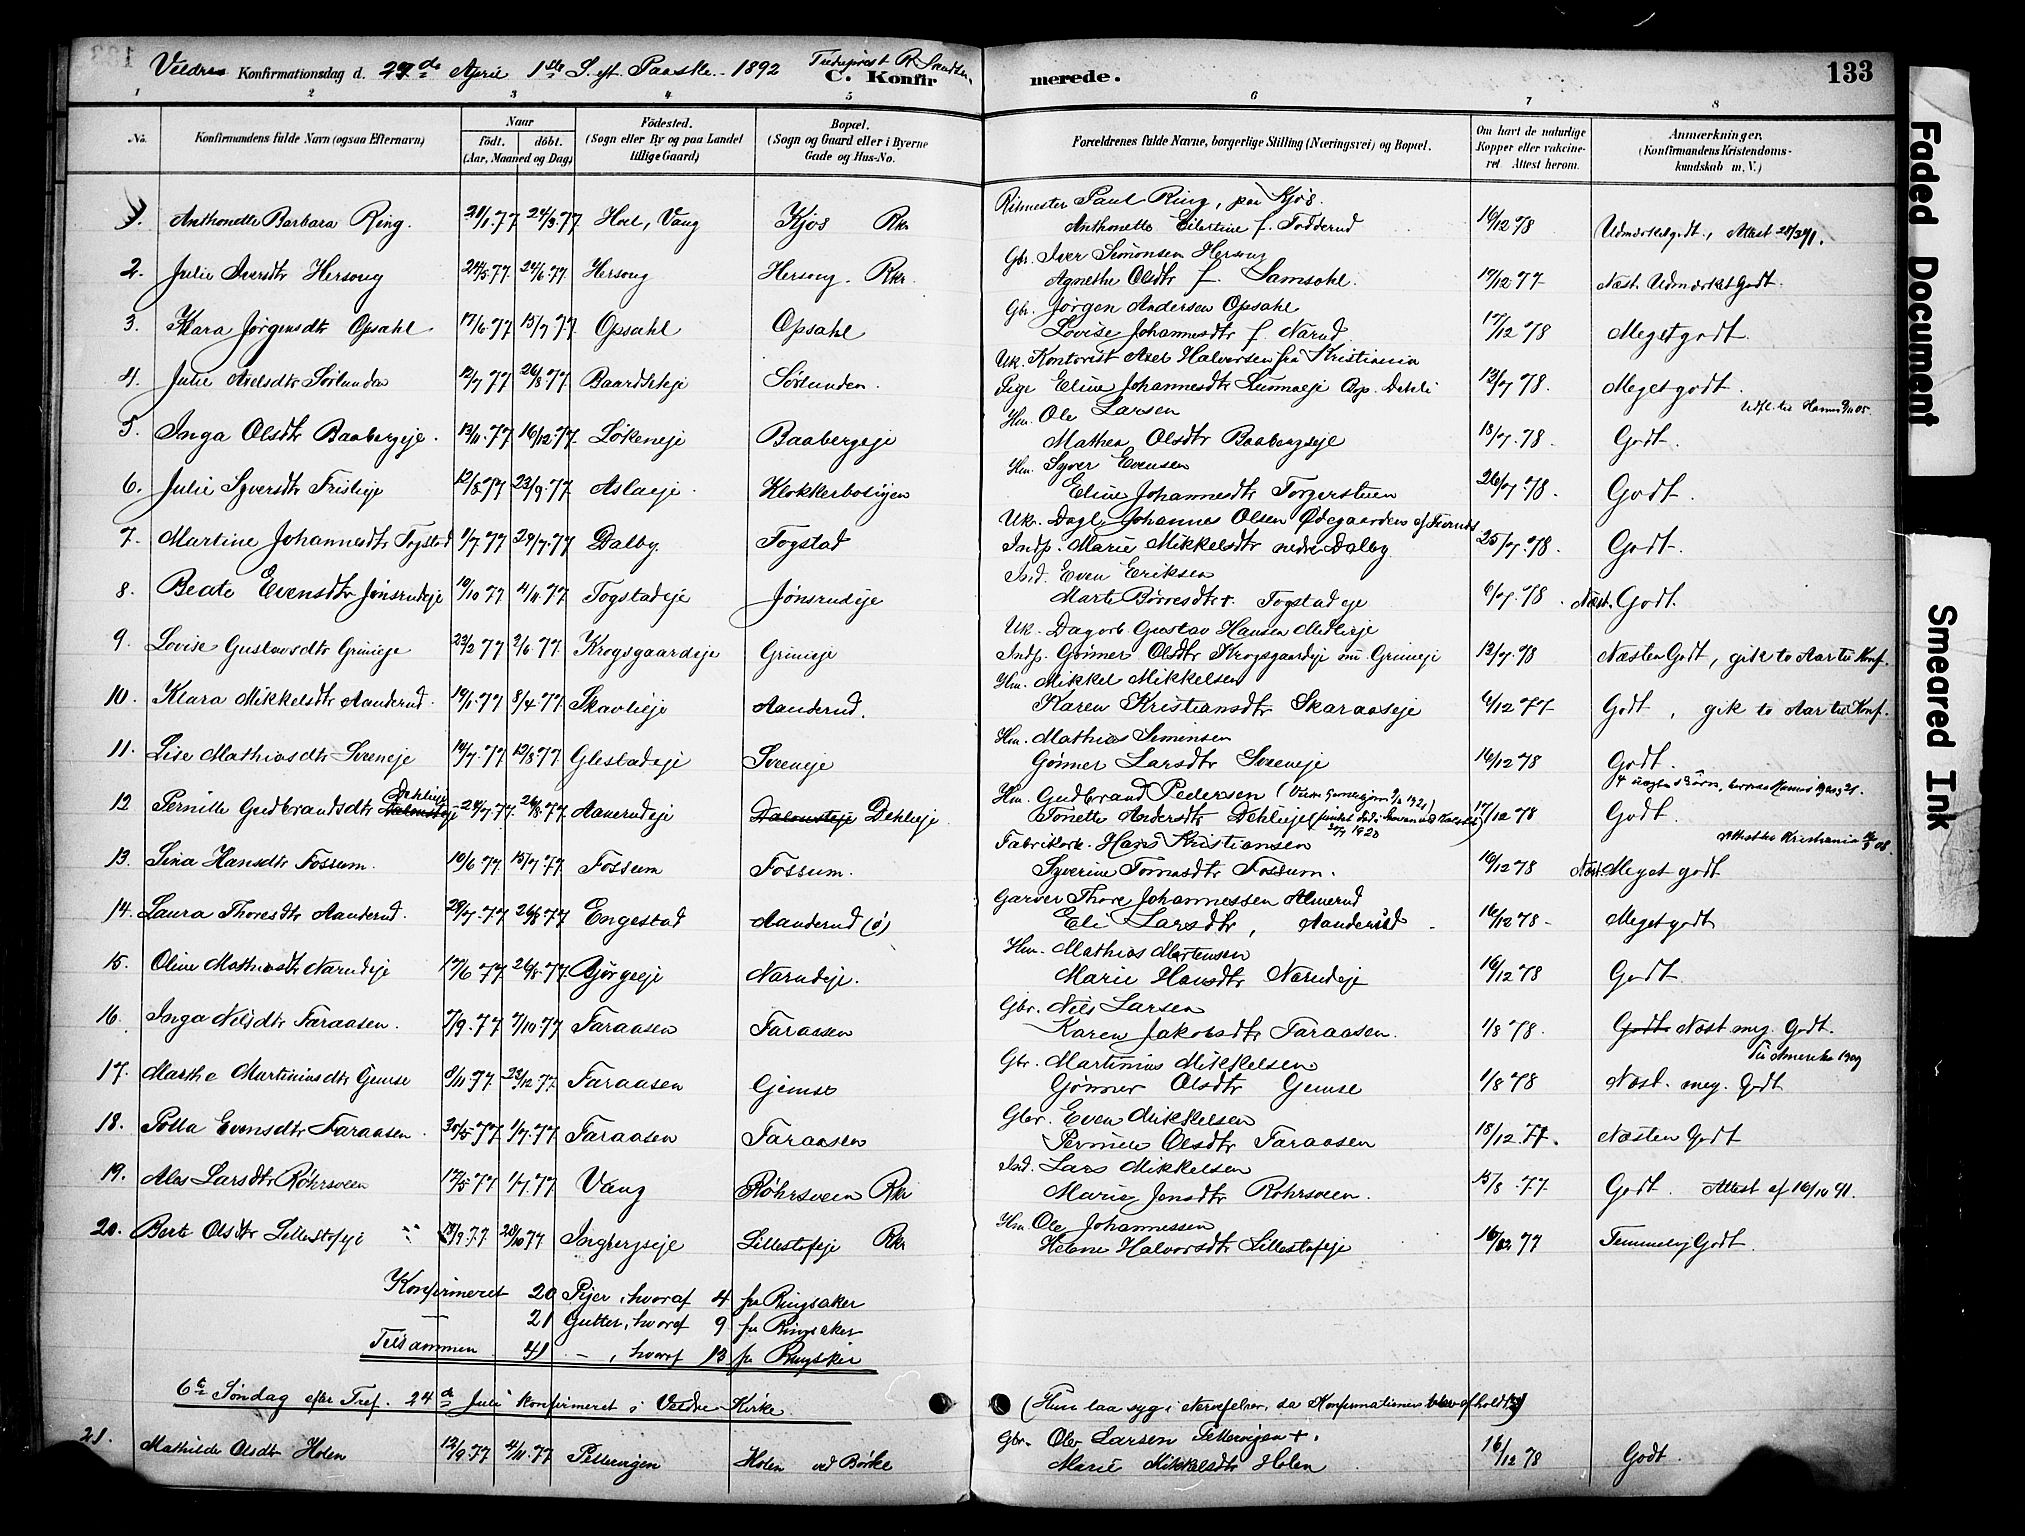 Veldre Konfirmationsdag d. 24de April 1ste S. eft. Paaske 1892
C. Konfirmerede.
133
1 2 3 4 5 6 7 8
No. Konfirmandens fulde Navn (ogsaa Efternavn)
Naar
Födt. döbt.
(Aar, Maaned og Dag)
Födested.
(Sogn eller By og paa Landet tillige Gaard)
Bopæl.
(Sogn og Gaard eller i Byerne Gade og Hus-No.
Forældrenes fulde Navne, borgerlige Stilling (Næringsvei) og Bopæl.
Om havt de naturlige Kopper eller vaccineret Attest herom.
Anmærkninger.
(Konfirmandens Kristendomskundskab m. V.)
Ritmester Paul Ring, paa Kjös.
1. Anthonette Barbara Ring. 24/3.77 Hoel, Vang Kjos Rkr Anthonette f. Fodderud 16/12 78 Udmærketgodt, Attest
Gbr. Iver Simonsen Hersoug
2. Julie Iversdtr Hersoug 24/5.77 24/6.77 Hersoug Hersoug. Rkr. Agnethe Olsdtr f. Samsahl. 17/12 77 Næst. Udmærket Godt.
Gbr. Jörgen Andersen Opsahl
3. Klara Jörgensdtr Opsahl 17/6.77 15/7.77 Opsahl Opsahl Lovise Johannesdtr f. Narud 17/12 78 Meget godt.
Uk. Kontorist Axel Halvorsen fra Kristiania
4. Julie Axelsdtr Sörlunden 12/7 77 26/8 77 Sörlunden. Pige Eline Johannesdtr 13/7 78. Meget godt.
Hm. Ole Larsen
5. Inga Olsdtr Baabergeje. 13/11.77 16/12.77 Lökeneje Baabergeje Mathea Olsdtr Baabergeje 18/7.78 Godt.
Hm. Syver Evensen
6. Julie Syversdtr Frisleje 12/8.77 23/9.77. Aslaeje. Klokkerboligen Eline Johannesdtr Torgerstuen 26/7.78. Godt.
Uk. Dagl. Johannes Olsen Ødegaarden af
7. Martine Johannesdtr Togstad 1/7 77 29/7.77 Dalby. Togstad Indp. Marie Mikkelsdtr nedre Dalby 25/7.78. Godt.
Ind. Even Eriksen
8. Beate Evensdtr Jönsrudeje 10/10 77 4/11.77 Togstadeje Jönsrudeje Marte Börresdtr. Togstadeje 6/7.78. Næst. Godt.
Uk. Dagarb. Gustav Hansen
9. Lovise Gustavsdtr Grimeje 23/2 77 3/6.77. Krogsgaardeje Grimeje Indp. Gönner Olsdtr Krogsgaardeje nu Grimeje 13/7.78 Næsten Godt, gik to Aar til Konf.
Hm. Mikkel Mikkelsen
10. Klara Mikkelsdtr Aanderud. 14/1.77 8/4.77 Skavlieje Aanderud. Karen Kristiansdtr Skaraaseje 6/12 77 Godt, gik to Aar til Konf.
Hm. Mathias Simensen
11. Lise Mathiasdtr Sveneje 14/7.77 12/8 77 Glestadeje Sveneje Gönner Larsdtr Sveneje 16/12 78 Godt.
Hm. Gudbrand Pedersen
12 Pernille Gudbrandsdtr Dehlieje 24/7.77. 26/8.77. Aanerudeje Dehlieje Tonette Andersdtr Dehlieje 17/12 78 Godt.
Fabrikark. Hans Kristiansen
13. Sina Hansdtr Fossum. 10/6 77 15/7.77 Fossum Fossum. Syverine Tomasdtr Fossum. 16/12 78 Næst. Meget godt
Garver Thore Johannessen Almerud
14. Laura Thoresdtr Aanderud. 29/7.77 26/8 77 Engestad Aanderud (ö) Eli Larsdtr, Aanderud 16/12 78 Meget godt
Hm. Mathias Martensen
15. Oline Mathiasdtr Narudeje 17/6 77 26/8.77. Bjørgeeje Narudeje. Marie Hansdtr Narudeje 16/12 78 Godt.
Gbr. Nils Larsen
16. Inga Nilsdtr Faraasen. 7/9.77 7/10.77. Faraasen Faraasen Karen Jakobsdtr Faraasen. 1/8 78. Godt Næst meg. Godt.
Til Amerika 1909
Gbr. Martinius Mikkelsen
17. Marthe Martiniusdtr Gjemse 8/11 77. 23/12 77. Faraasen Gjemse Gönner Olsdtr Gjemse 1/8 78 Næst. meg. Godt
Gbr. Even Mikkelsen
18. Evensdtr Faraasen. 30/5.77 1/7.77 Faraasen Faraasen Pernille Olsdtr Faraasen 18/12.77. Næsten Godt
Ind. Lars Mikkelsen
19. Larsdtr Röhrsveen 17/5.77 1/7.77 Vang Röhrsveen Rkr Marie Jensdtr Rohrsveen. 15/8.77. Godt. Attest af 16/10 91.
Hm Ole Johannessen
20. Berte Olsdtr Lillestofeje 18/9.77 28/10 77 Ingbergseje Lillestofeje Rkr Helene Halvorsdtr Lillestofeje 16/12 77 Temmelig Godt.
Konfirmeret 20 Piger, hvoraf 4 fra Ringsaker
— 21 Gutter, hvoraf 9 fra Ringsaker
Tilsammen 41 — , hvoraf 13 fra Ringsaker
6te Söndag efter Tref. 24de Juli konfirmeret i Veldre Kirke. (Hun laa syg i Nervefeber, da Konfirmationen blev afholdt)
21. Mathilde Olsdtr Holen 12/9.77 4/11.77 Pellervigen Holen ved Börke Gbr. Ole Larsen Pellervigen +. Marie Mikkelsdtr Holen 16/12 78 Godt.
Faded Document
Smeared Ink